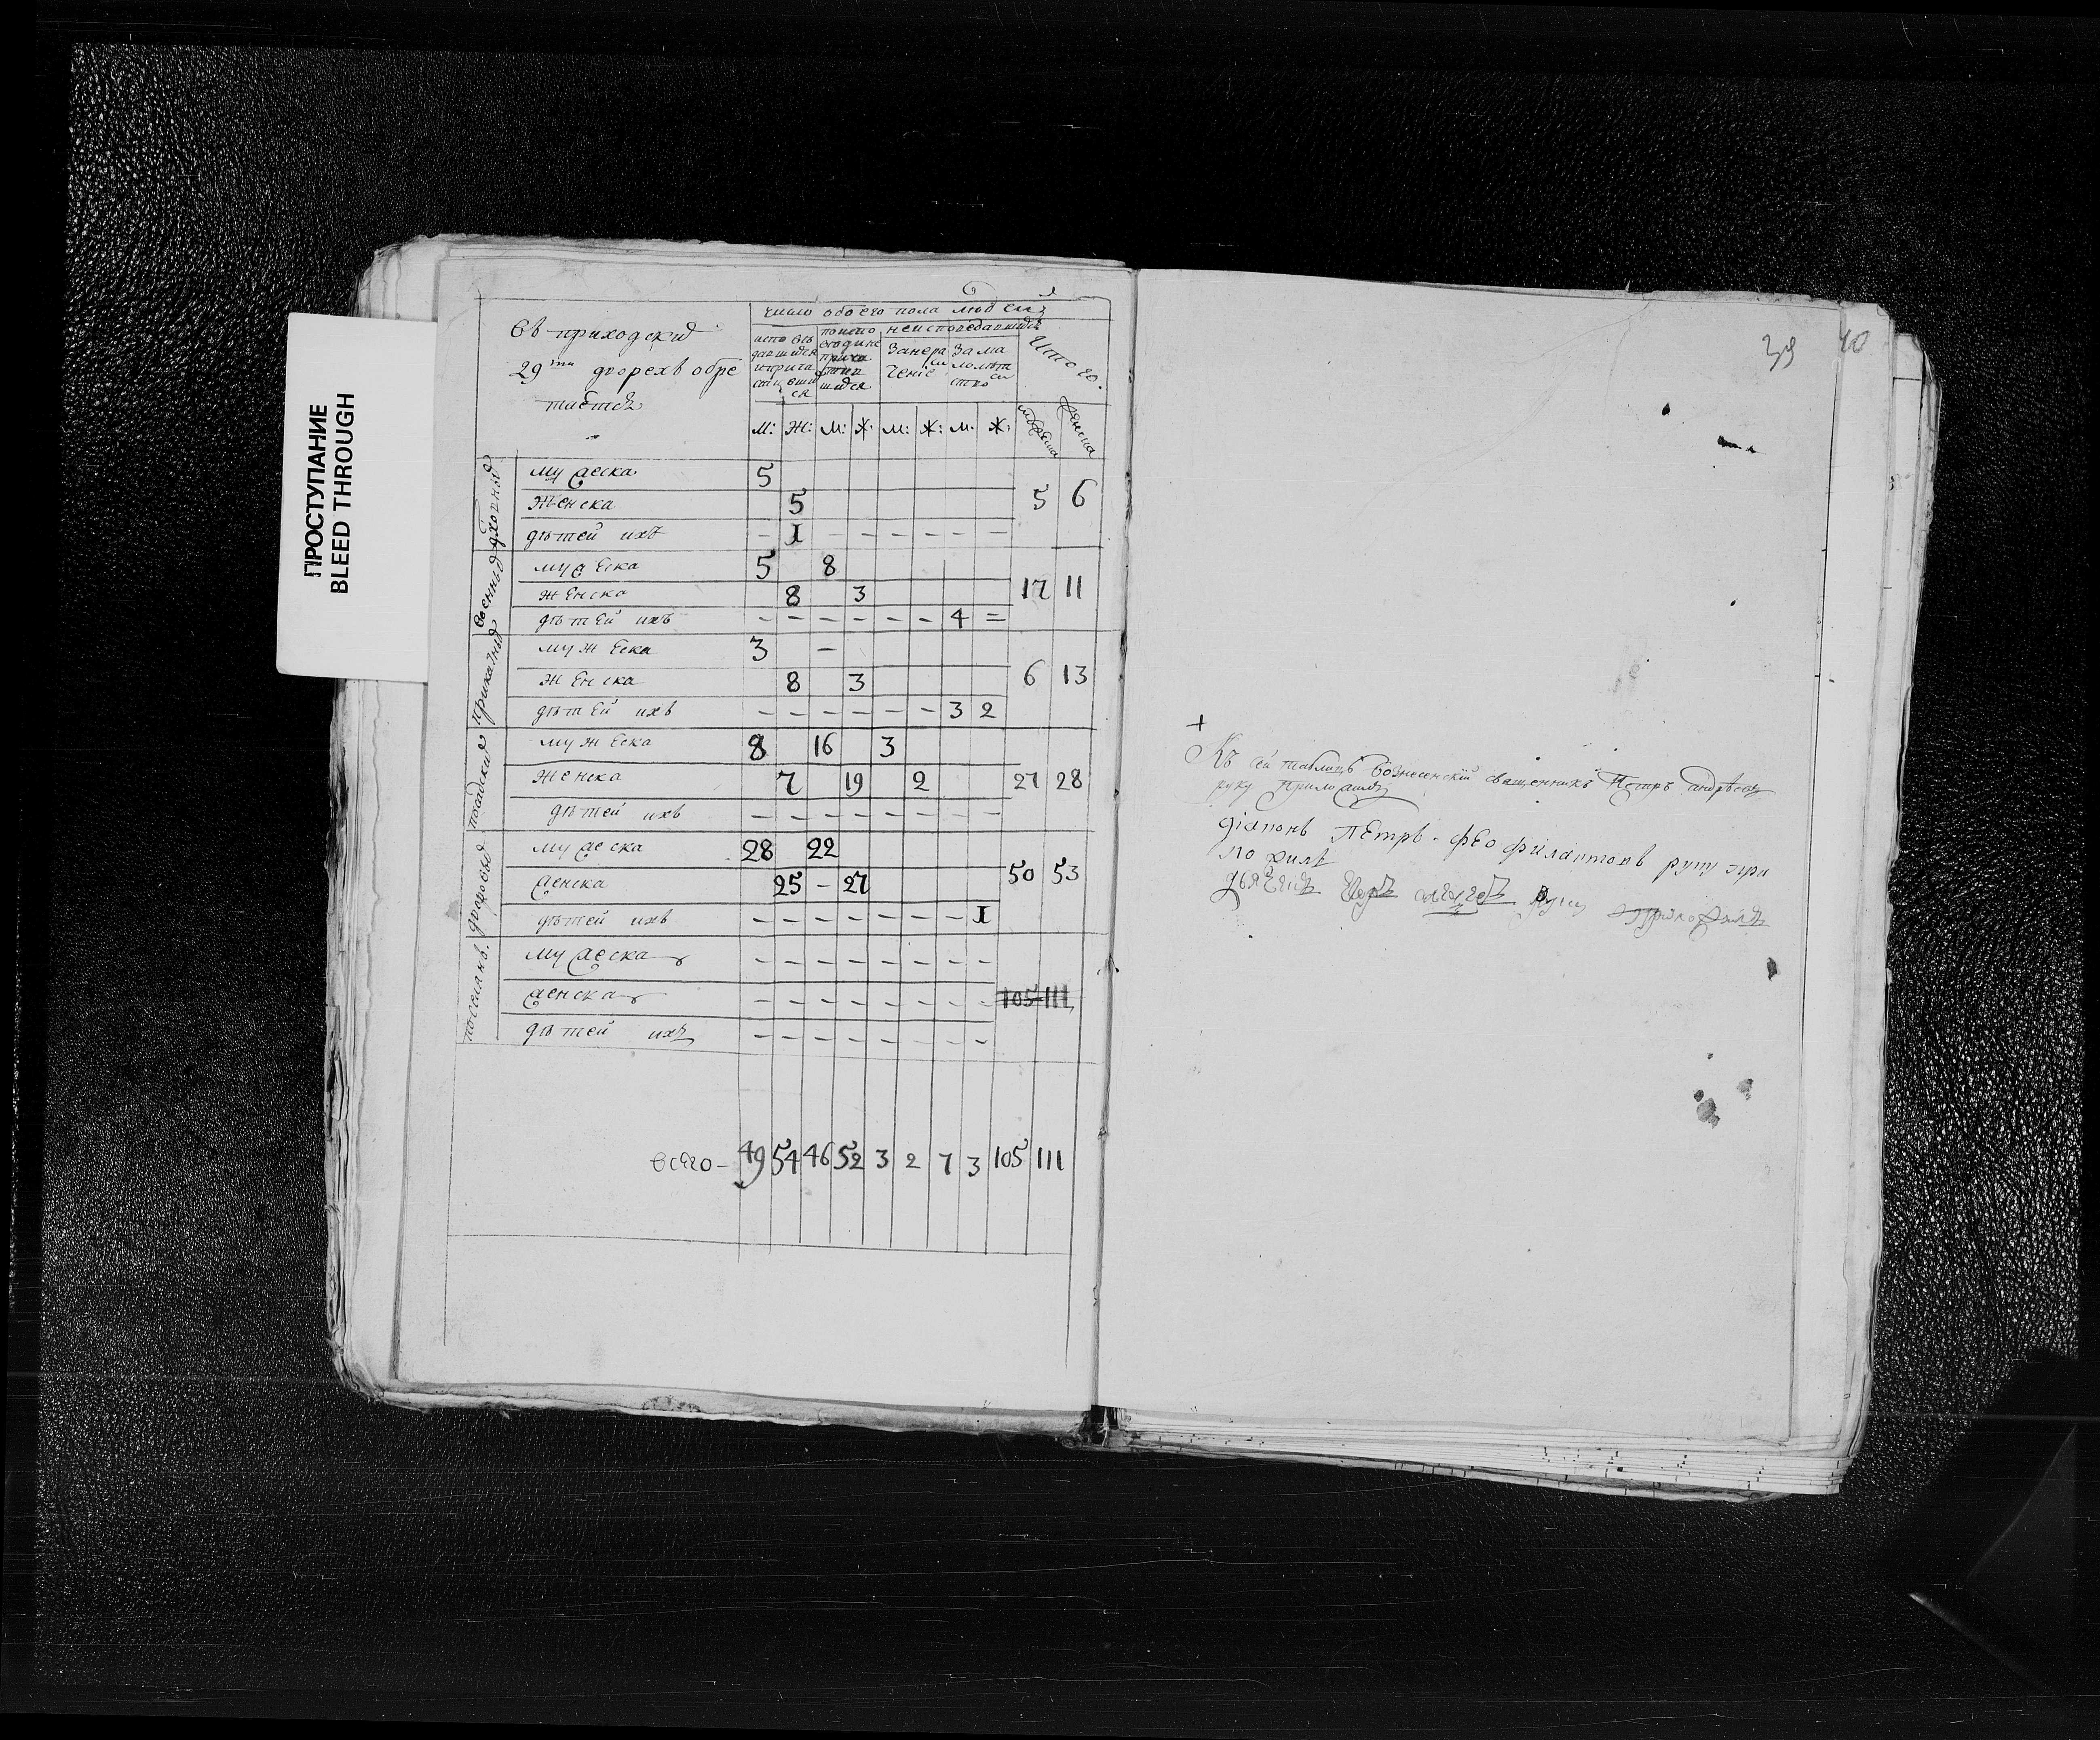 ПРОСТУПАНИЕ
BLEED THROUGH
въ приходских
29ти дворехъ обре
таетса
число обоего пола людей
испове
давшихся
и прича
стившие
ся
токмо
исповеда
не прича
стив
шихся
неисповедавшихся
За нера
чение
За ма
лолет
ство
Итого
м: ж: м: ж: м: ж: м: ж: мужеска женска
духовныя
мужеска 5
женска 5 5 6
детей ихъ – 1 – – – – – –
военныя
мужеска 5 8
женска 8 3 17 11
детей ихъ – – – – – – 4 =
приказныя
мужеска 3 –
женска 8 3 6 13
детей ихъ – – – – – – 3 2
посадския
мужеска 8 16 3
женска 7 19 2 27 28
детей ихъ – – – – – – – –
дворовыя
мужеска 28 22
женска 25 – 27 50 53
детей ихъ – – – – – – – 1
поселянъ.
мужеска – – – – – – – –
женска – – – – – – – – 105 111
детей ихъ – – – – – – – –
всего – 49 54 46 52 3 2 7 3 105 111
39 40
+
Къ сей таблице Вознесенский священникъ Петръ Андреевъ
руку приложилъ
діаконъ Петръ Феофилактовъ руку при
ложилъ
дьячекъ руку приложилъ